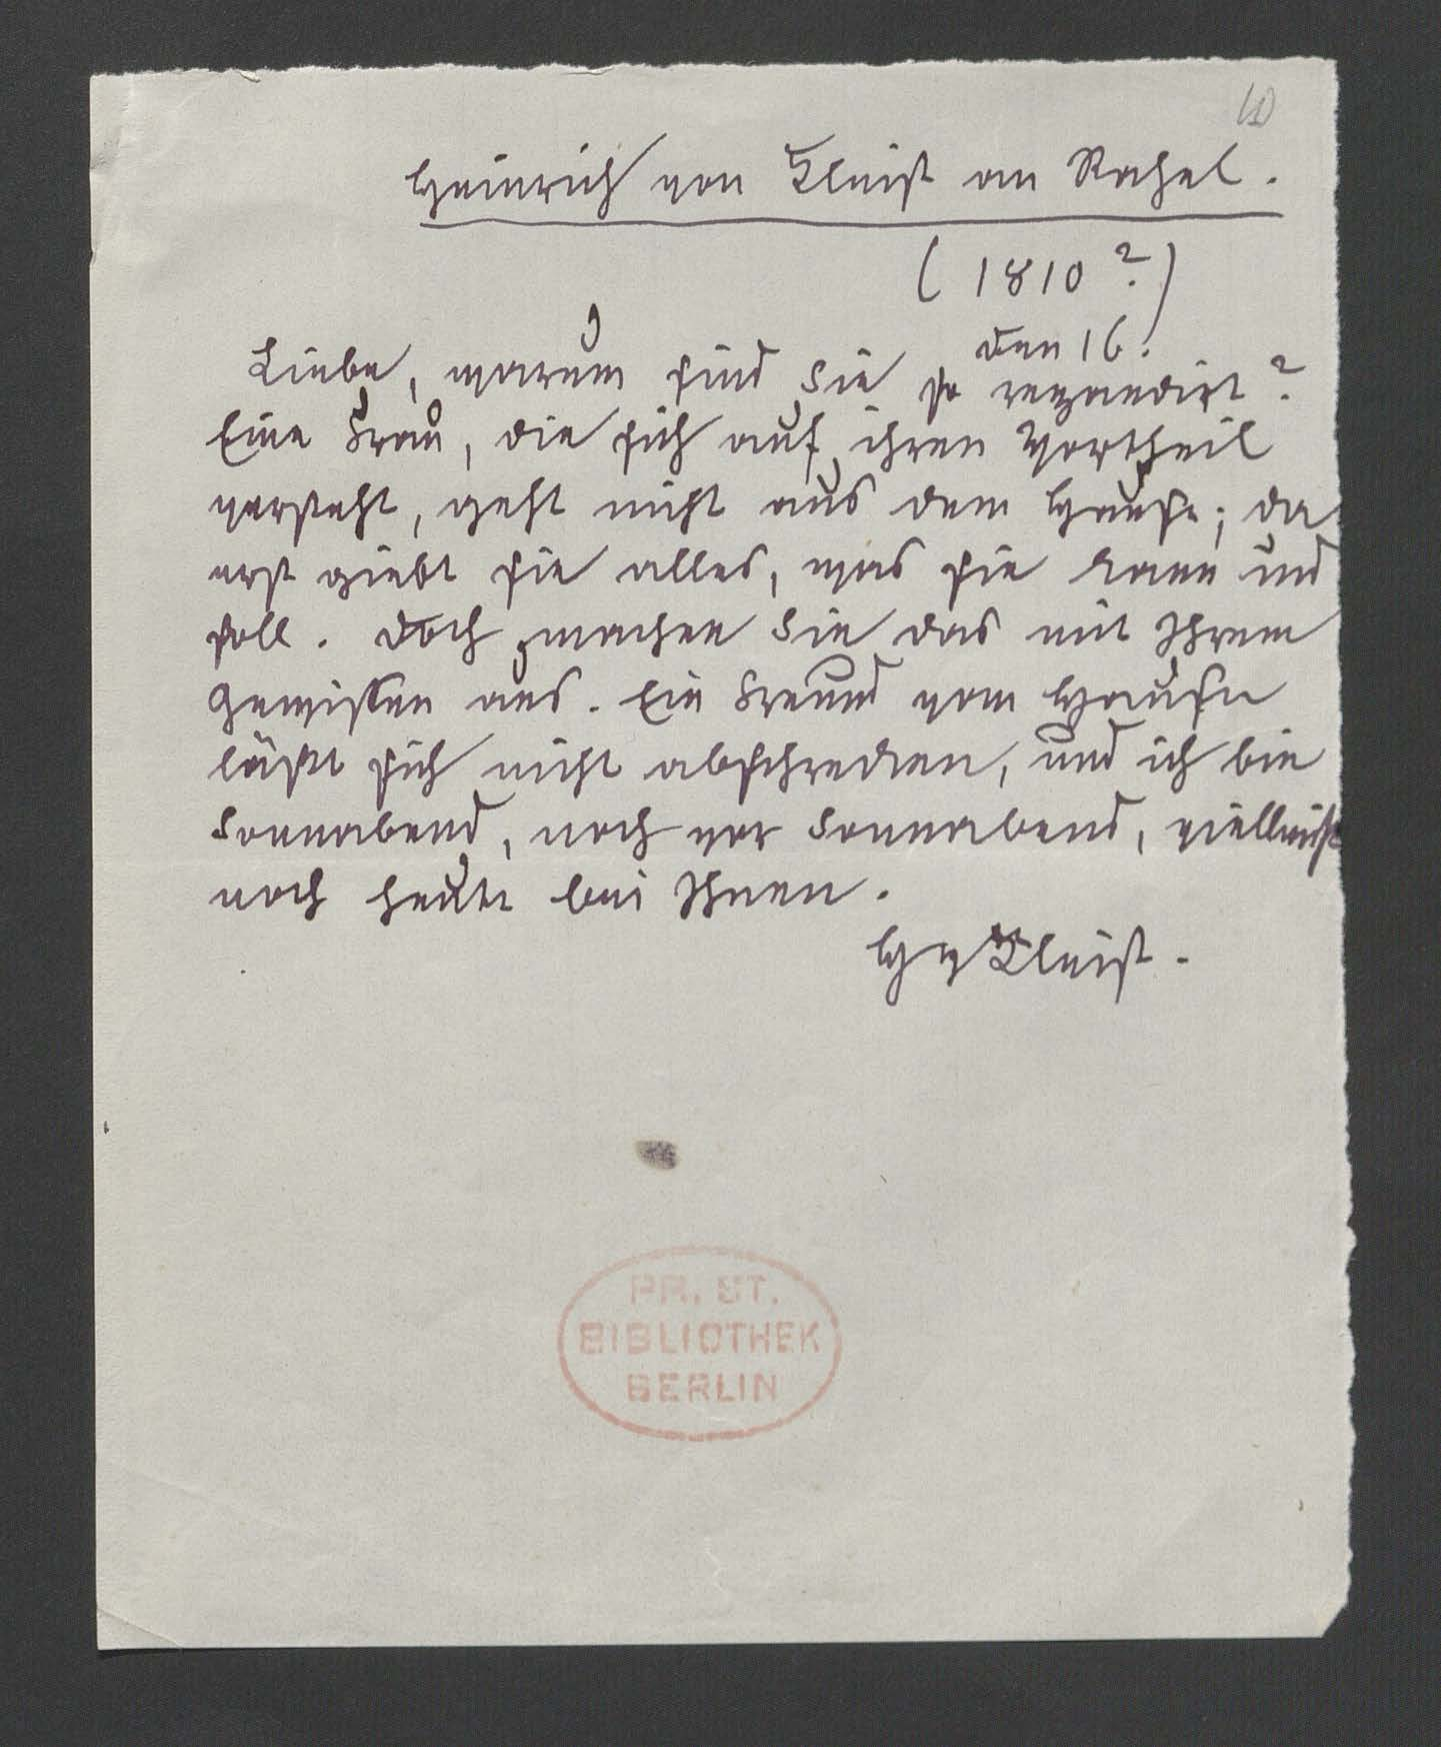 10
Heinrich von Kleist an Rahel.
(1810?)
den 16.
Liebe, warum sind Sie so repandirt?
Eine Frau, die sich auf ihren Vortheil
versteht, geht nicht aus dem Hause; da
erst giebt sie alles, was sie kann und
soll. Doch machen Sie das mit Ihrem
Gewissen aus. Ein Freund vom Hause
läßt sich nicht abschrecken, und ich bin
Sonnabend, noch vor Sonnabend, vielleicht
noch heute bei Ihnen.
H v Kleist.
PR. ST.
BIBLIOTHEK
BERLIN